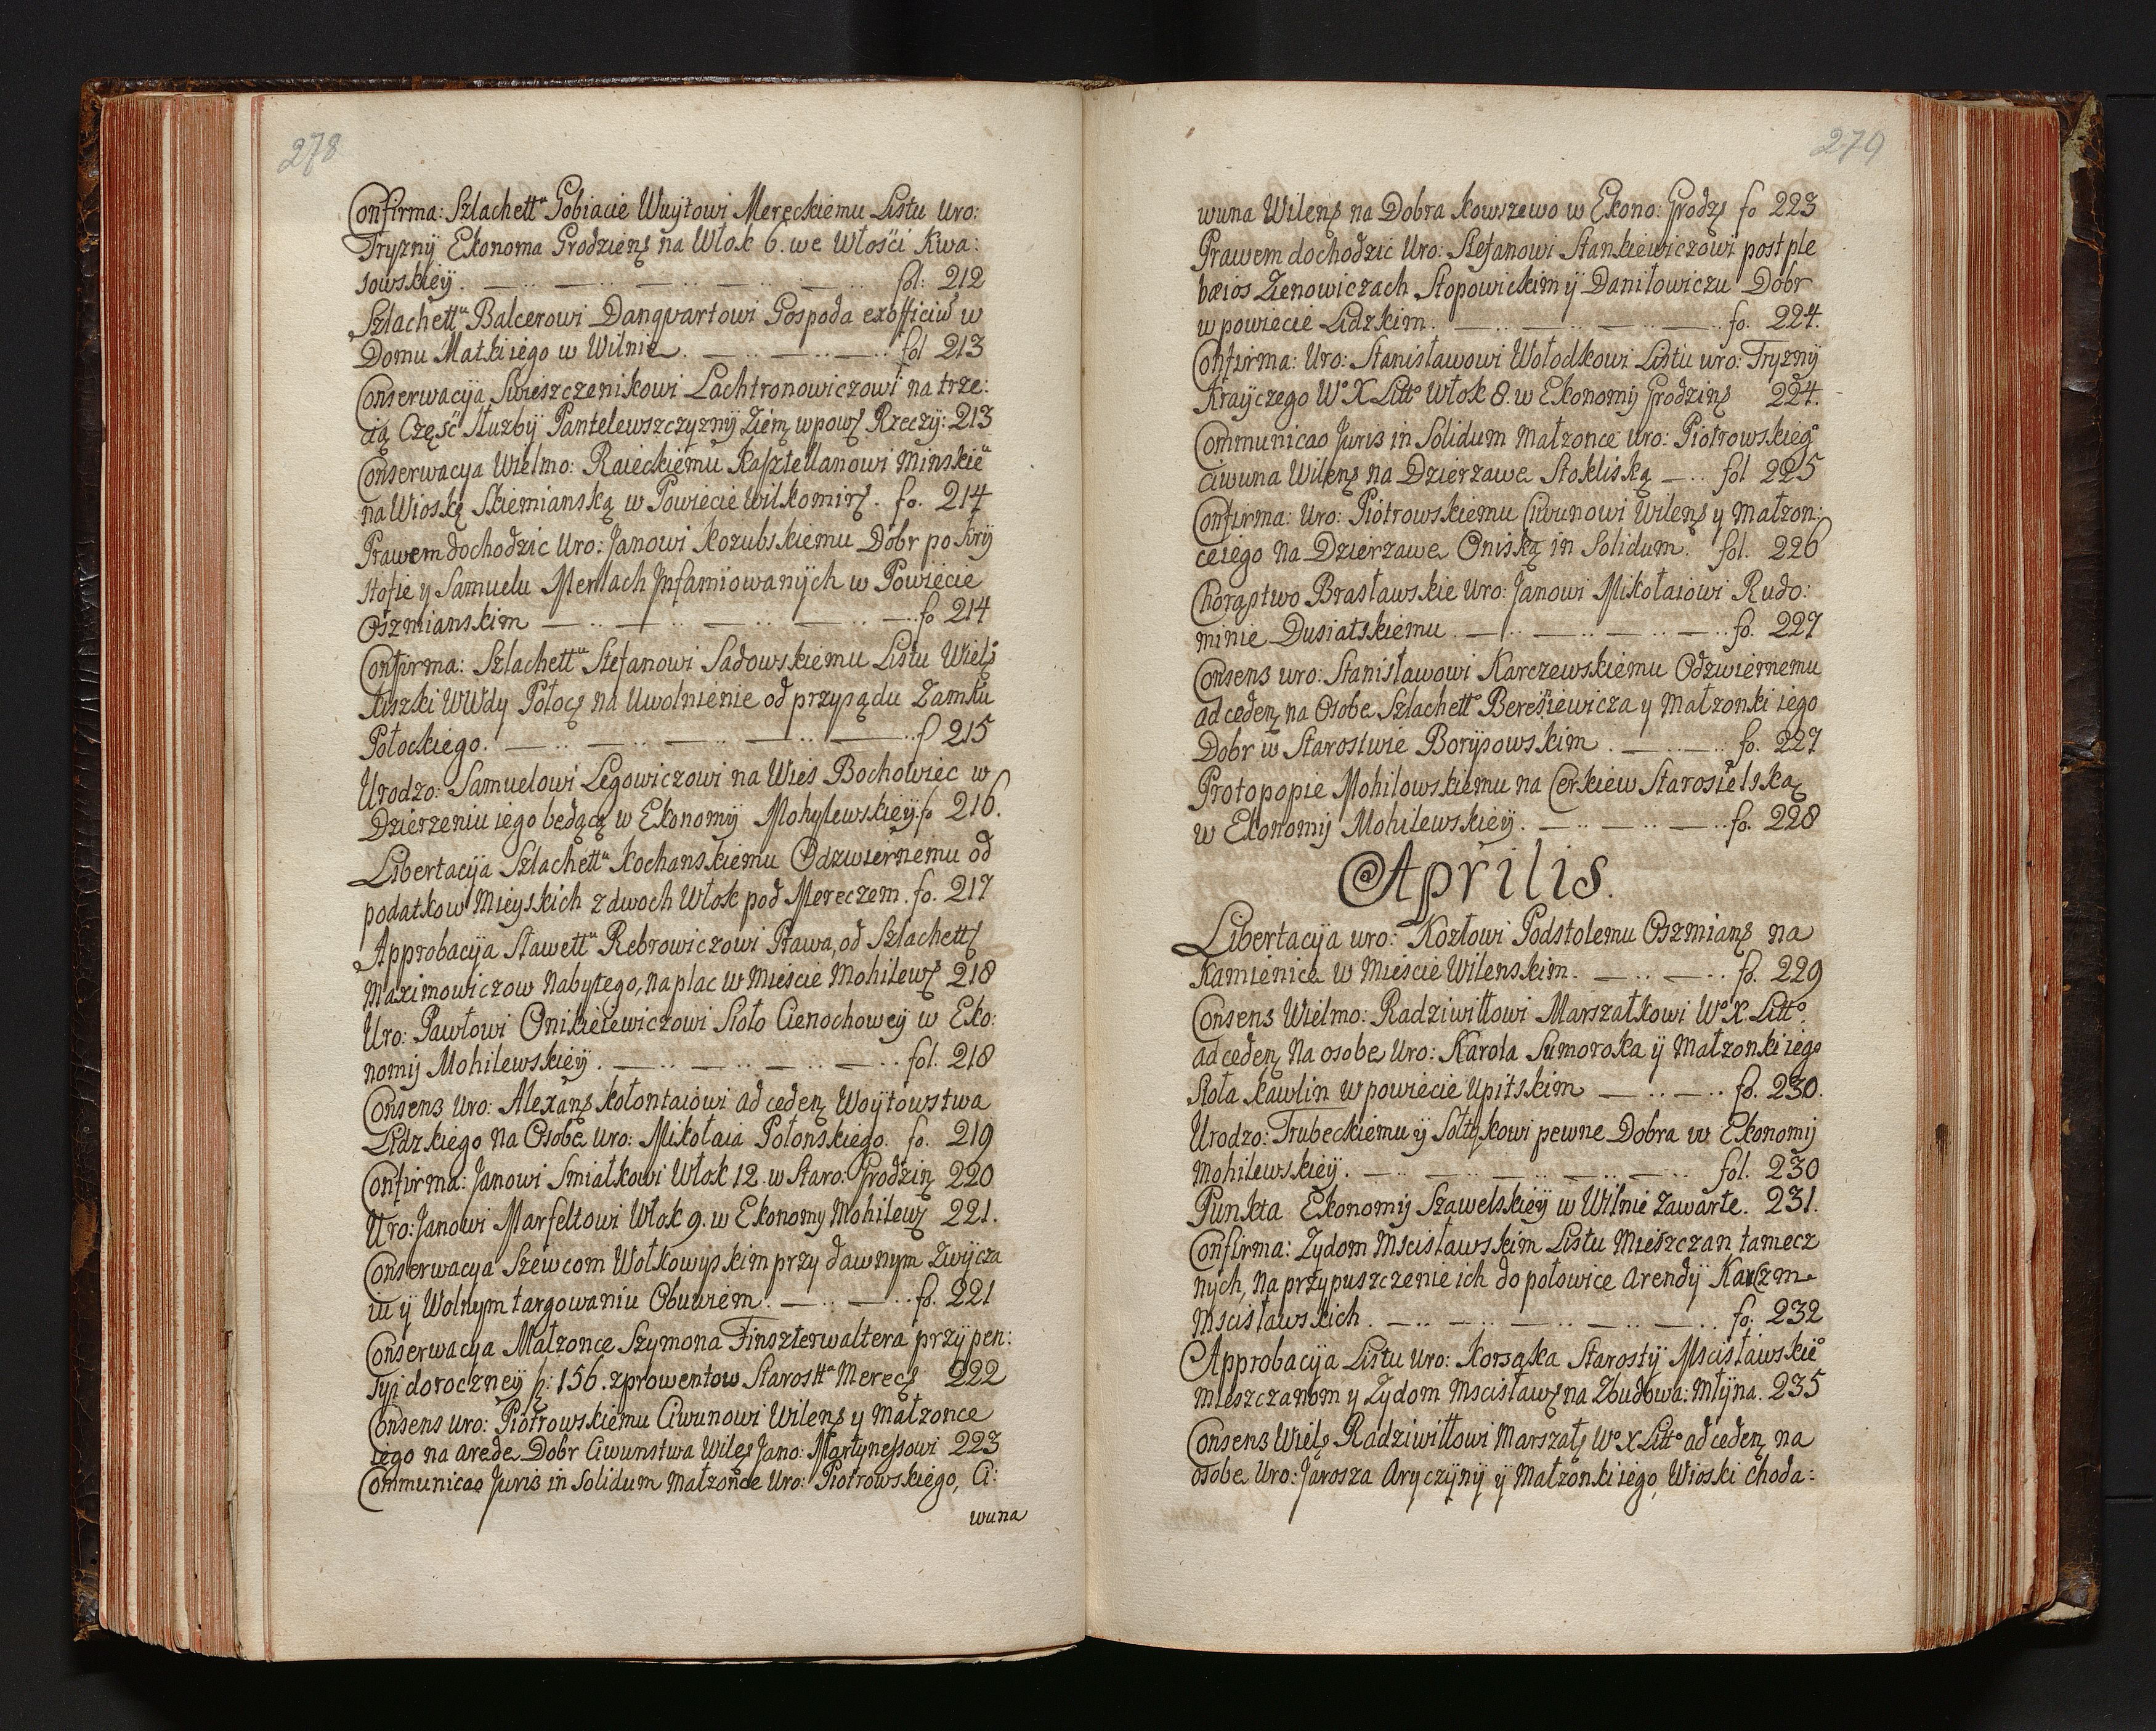 278
Confirma: Szlachettu Gobiacie Wuytowi Mereckiemu Listu Uro:
Tryzny Ekonoma Grodzieng na Włok 6. we Włosci Kwa:
sowskieÿ. fol: 212
Szlachettu Balcerowi Dangvartowi Gospoda exofficiu w
Domu Matki iego w Wilnie. fol 213
Conserwacÿa Swieszczenikowi Lachtronowiczowi na trze:
cią Część służbÿ Pantelewszczyznÿ Ziem w pow Rzeczÿ: 213
Conserwacya Wielmo: Raieckiemu Kasztellanowi Minskieu
na Wioskę Skiemianską w Powiecie Wilkomir. fo. 214
Prawem dochodzic Uro: Janowi Kozubskiemu Dobr po Krÿ
sztofie y Samuelu Merlach Jnfamiowanÿch w Powiecie
Oszmianskim fo 214
Confirma: Szlachettu Stefanowi Sadowskiemu Listu Wiel:
Kiszki WWdy Połoc na Uwolnienie od przysądu Zamku
Połockiego. f 215
Urodzo: Samuelowi Legowiczowi na Wies Bochowiec w
Dzierzeniu iego będącą w Ekonomÿ Mohylewskieÿ. fo 216.
Libertacÿa Szlachettu Kochanskiemu Odzwiernemu od
podatkow Mieÿskich z dwoch Włok pod Mereczem. fo. 217
Approbacÿa Sławettu Rebrowiczowi Prawa, od Szlachett
Maximowiczow Nabytego, na plac w Miescie Mohilew 218
Uro: Pawłowi Onikieiewiczowi Sioło Cienochoweÿ w Eko:
nomiÿ Mohilewskieÿ. fol. 218
Consens Uro: Alexan Kołontaiowi ad ceden Woÿtowstwa
Lidzkiego na Osobe Uro: Mikołaia Połonskiego. fo. 219
Confirma: Janowi Smiałkowi Włok 12. w Staro: Grodzin 220
Uro: Janowi Marfeltowi Włok 9. w Ekonomy Mohilew 221.
Conserwacya Szewcom Wołkowyskim przy dawnym Zwÿcza
iu ÿ Wolnym targowaniu Obuwiem. fo. 221
Conserwacya Małzonce Szymona Finszterwaltera przÿ pen:
syi doroczneÿ f: 156. z prowentow Starostta Merec 222
Consens uro: Piotrowskiemu Ciwunowi Wilen y Małzonce
iego na arede Dobr Ciwunstwa Wile Jano: Martynessowi 223
Communicao Juris in Solidum Małzonce Uro: Piotrowskiego, Ci:
wuna
279
wuna Wilen na Dobra Kowszewo w Ekono: Grodz fo 223
Prawem dochodzić Uro: Stefanowi Stankiewiczowi post ple
bæios Zienowiczach Stopowickim ÿ Daniłowiczu Dobr
w powiecie Lidzkim. fo. 224.
Confirma: Uro: Stanisławowi Wołodkowi Listu uro: Tryznÿ
Kraÿczego Wo X Litto Włok 8. w Ekonomÿ Grodzin 224.
Communicao Juris in Solidum Małzonce uro: Piotrowskiego
Ciwuna Wilen na Dzierzawe Stokliską fol 225
Confirma: Uro: Piotrowskiemu Ciwunowi Wilen y Małzon:
ce iego na Dzierzawe Oniską in Solidum. fol. 226
Chorąstwo Brasławskie Uro: Janowi Mikołaiowi Rudo:
minie Dusiatskiemu. fo. 227
Consens uro: Stanisławowi Karczewskiemu Odzwiernemu
ad ceden na Osobe Szlachetto Beresiewicza y Małzonki iego
Dobr w Starostwie Borÿsowskim. fo. 227
Protopopie Mohilowskiemu na Cerkiew Starosielską
w Ekonomÿ Mohilewskieÿ. fo. 228
Aprilis.
Libertacÿa uro: Kozłowi Podstolemu Oszmian na
Kamienice w Mieście Wilenskim. fo. 229
Consens Wielmo: Radziwiłłowi Marszałkowi Wo X. Litto.
ad ceden Na osobe Uro: Karola Sumoroka ÿ Małzonki iego
Sioła Kawlin w powiecie Upitskim fo. 230.
Urodzo: Trubeckiemu ÿ Sołtykowi pewne Dobra w Ekonomiÿ
Mohilewskieÿ. fol. 230
Punkta Ekonomÿ Szawelskieÿ w Wilnie Zawarte. 231.
Confirma: Zydom Mscisławskim Listu Mieszczan tamecz
nÿch, na przypuszczenie ich do połowice Arendÿ Karczm
Mscisławskich. fo: 232
Approbacÿa Listu uro: Korsaka Starostÿ Mscisławskieo
mieszczanom y Zydom Mscisław na Zbudowa: Młÿna. 235
Consens Wiel Radziwiłłowi Marszał Wo X Litto ad ceden na
osobe Uro: Jarosza Aryczÿnÿ ÿ Małzonki iego, Wioski Choda: